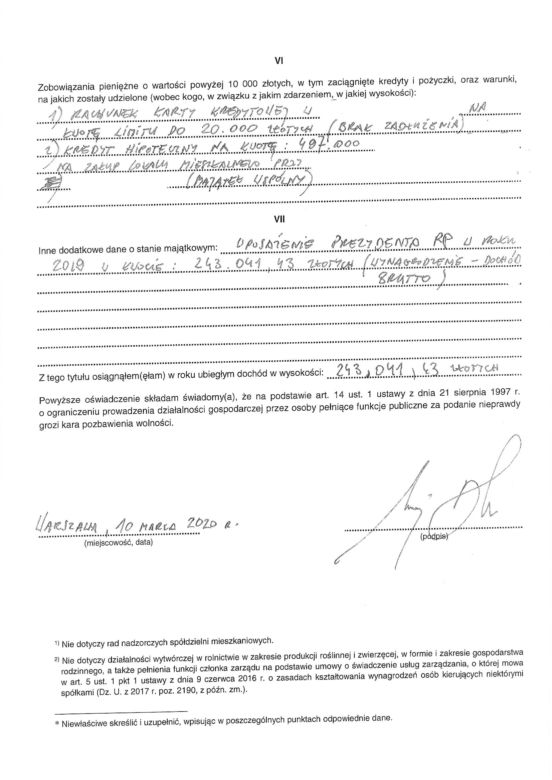 VI
Zobowiązania pieniężne o wartości powyżej 10 000 złotych, w tym zaciągnięte kredyty i pożyczki, oraz warunki,
na jakich zostały udzielone (wobec kogo, w związku z jakim zdarzeniem, w jakiej wysokości):
1) RACHUNEK KARTY KREDYTOWEJ NA
KWOTĘ LIMITU DO 20.000 ZŁOTYCH (BRAK ZADŁUŻENIA)
2) KREDYT HIPOTECZNY NA KWOTĘ:
NA ZAKUP LOKALU MIESZKALNEGO
(MAJĄTEK WSPÓLNY)
VII
Inne dodatkowe dane o stanie majątkowym: UPOSAŻENIE PREZYDENTA RP W ROKU
2019 W KWOCIE: 243.041,43 ZŁOTYCH (WYNAGRODZENIE – DOCHÓD
BRUTTO)
Z tego tytułu osiągnąłem(ęłam) w roku ubiegłym dochód w wysokości: 243.041,43 ZŁOTYCH
Powyższe oświadczenie składam świadomy(a), że na podstawie art. 14 ust. 1 ustawy z dnia 21 sierpnia 1997 r.
o ograniczeniu prowadzenia działalności gospodarczej przez osoby pełniące funkcje publiczne za podanie nieprawdy
grozi kara pozbawienia wolności.
WARSZAWA, 10 MARCA 2020 R.
(miejscowość, data)
(podpis)
1) Nie dotyczy rad nadzorczych spółdzielni mieszkaniowych.
2) Nie dotyczy działalności wytwórczej w rolnictwie w zakresie produkcji roślinnej i zwierzęcej, w formie i zakresie gospodarstwa
rodzinnego, a także pełnienia funkcji członka zarządu na podstawie umowy o świadczenie usług zarządzania, o której mowa
w art. 5 ust. 1 pkt 1 ustawy z dnia 9 czerwca 2016 r. o zasadach kształtowania wynagrodzeń osób kierujących niektórymi
spółkami (Dz. U. z 2017 r. poz. 2190, z późn. zm.).
* Niewłaściwe skreślić i uzupełnić, wpisując w poszczególnych punktach odpowiednie dane.